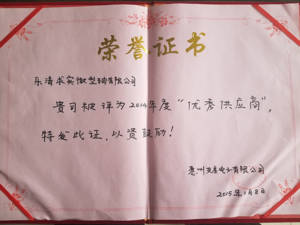 荣誉证书
乐清求实微型轴有限公司
贵司被评为2014年度“优秀供应商”，
特发此证，以资鼓励！
惠州 电子有限公司
2015年1月8日